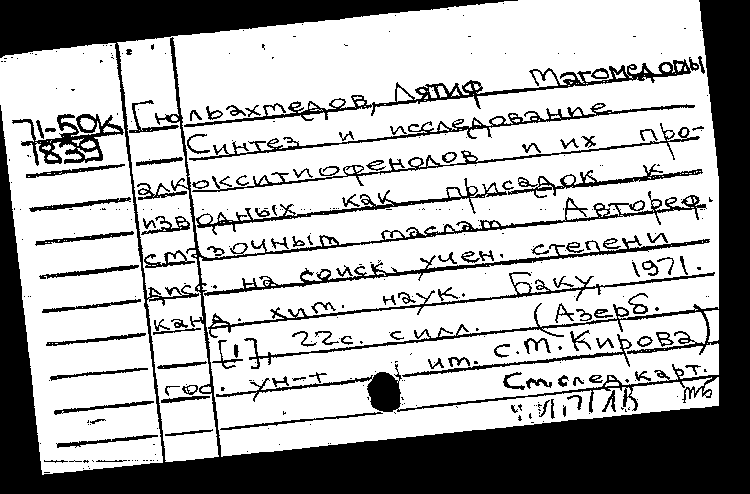 71-50K
1839
Гюльахмедов, Лятиф Магомед оглы
Синтез и исследование
алкокситиофенолов и их про-
изводных как присадок к
смазочным маслам Автореф.
дисс. на соиск. учен. степени
канд. хим. наук. Баку, 1971.
[1], 22с. силл. (Азерб.
гос. ун-т им. С.М. Кирова)
См. след. карт.